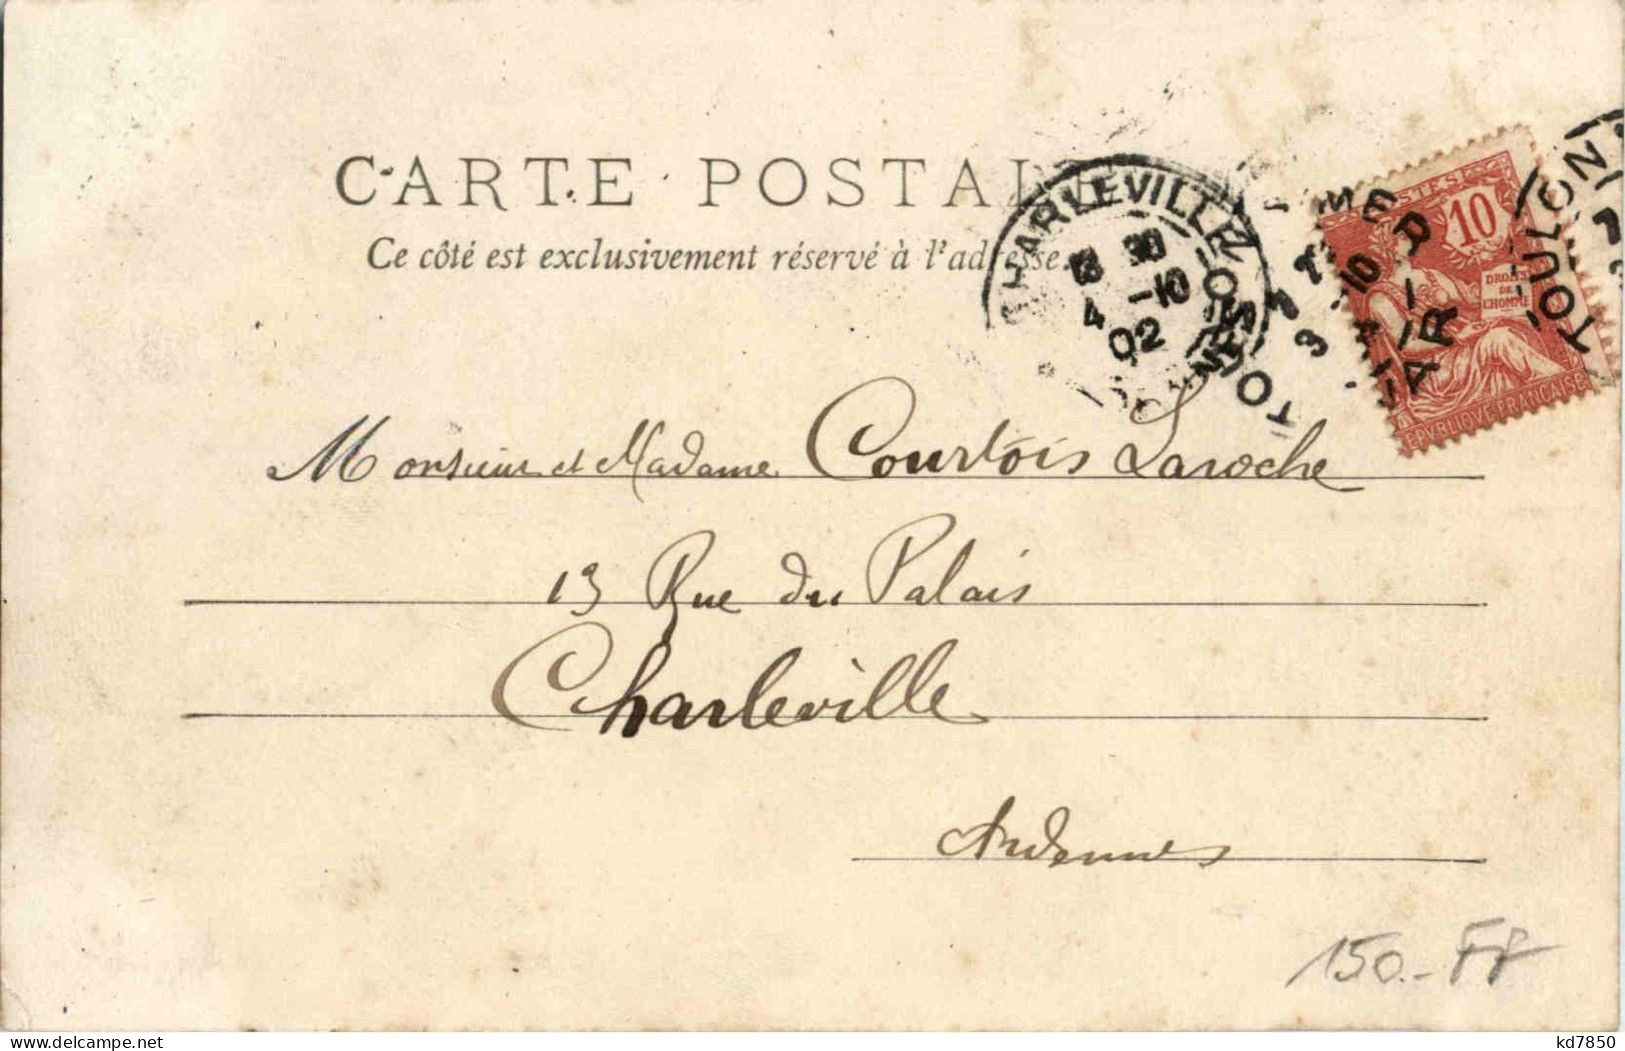 CARTE POSTALE
Ce côté est exclusivement réservé à l'adresse.
CHARLEVILLE
4 -10
02
TOULON
VAR
POSTES
10
DROITS
DE
L'HOMME
REPVBLIQVE FRANÇAISE
Monsieur et Madame Courtois Laroche
13 Rue du Palais
Charleville
Ardennes
150.- FF
kd7850